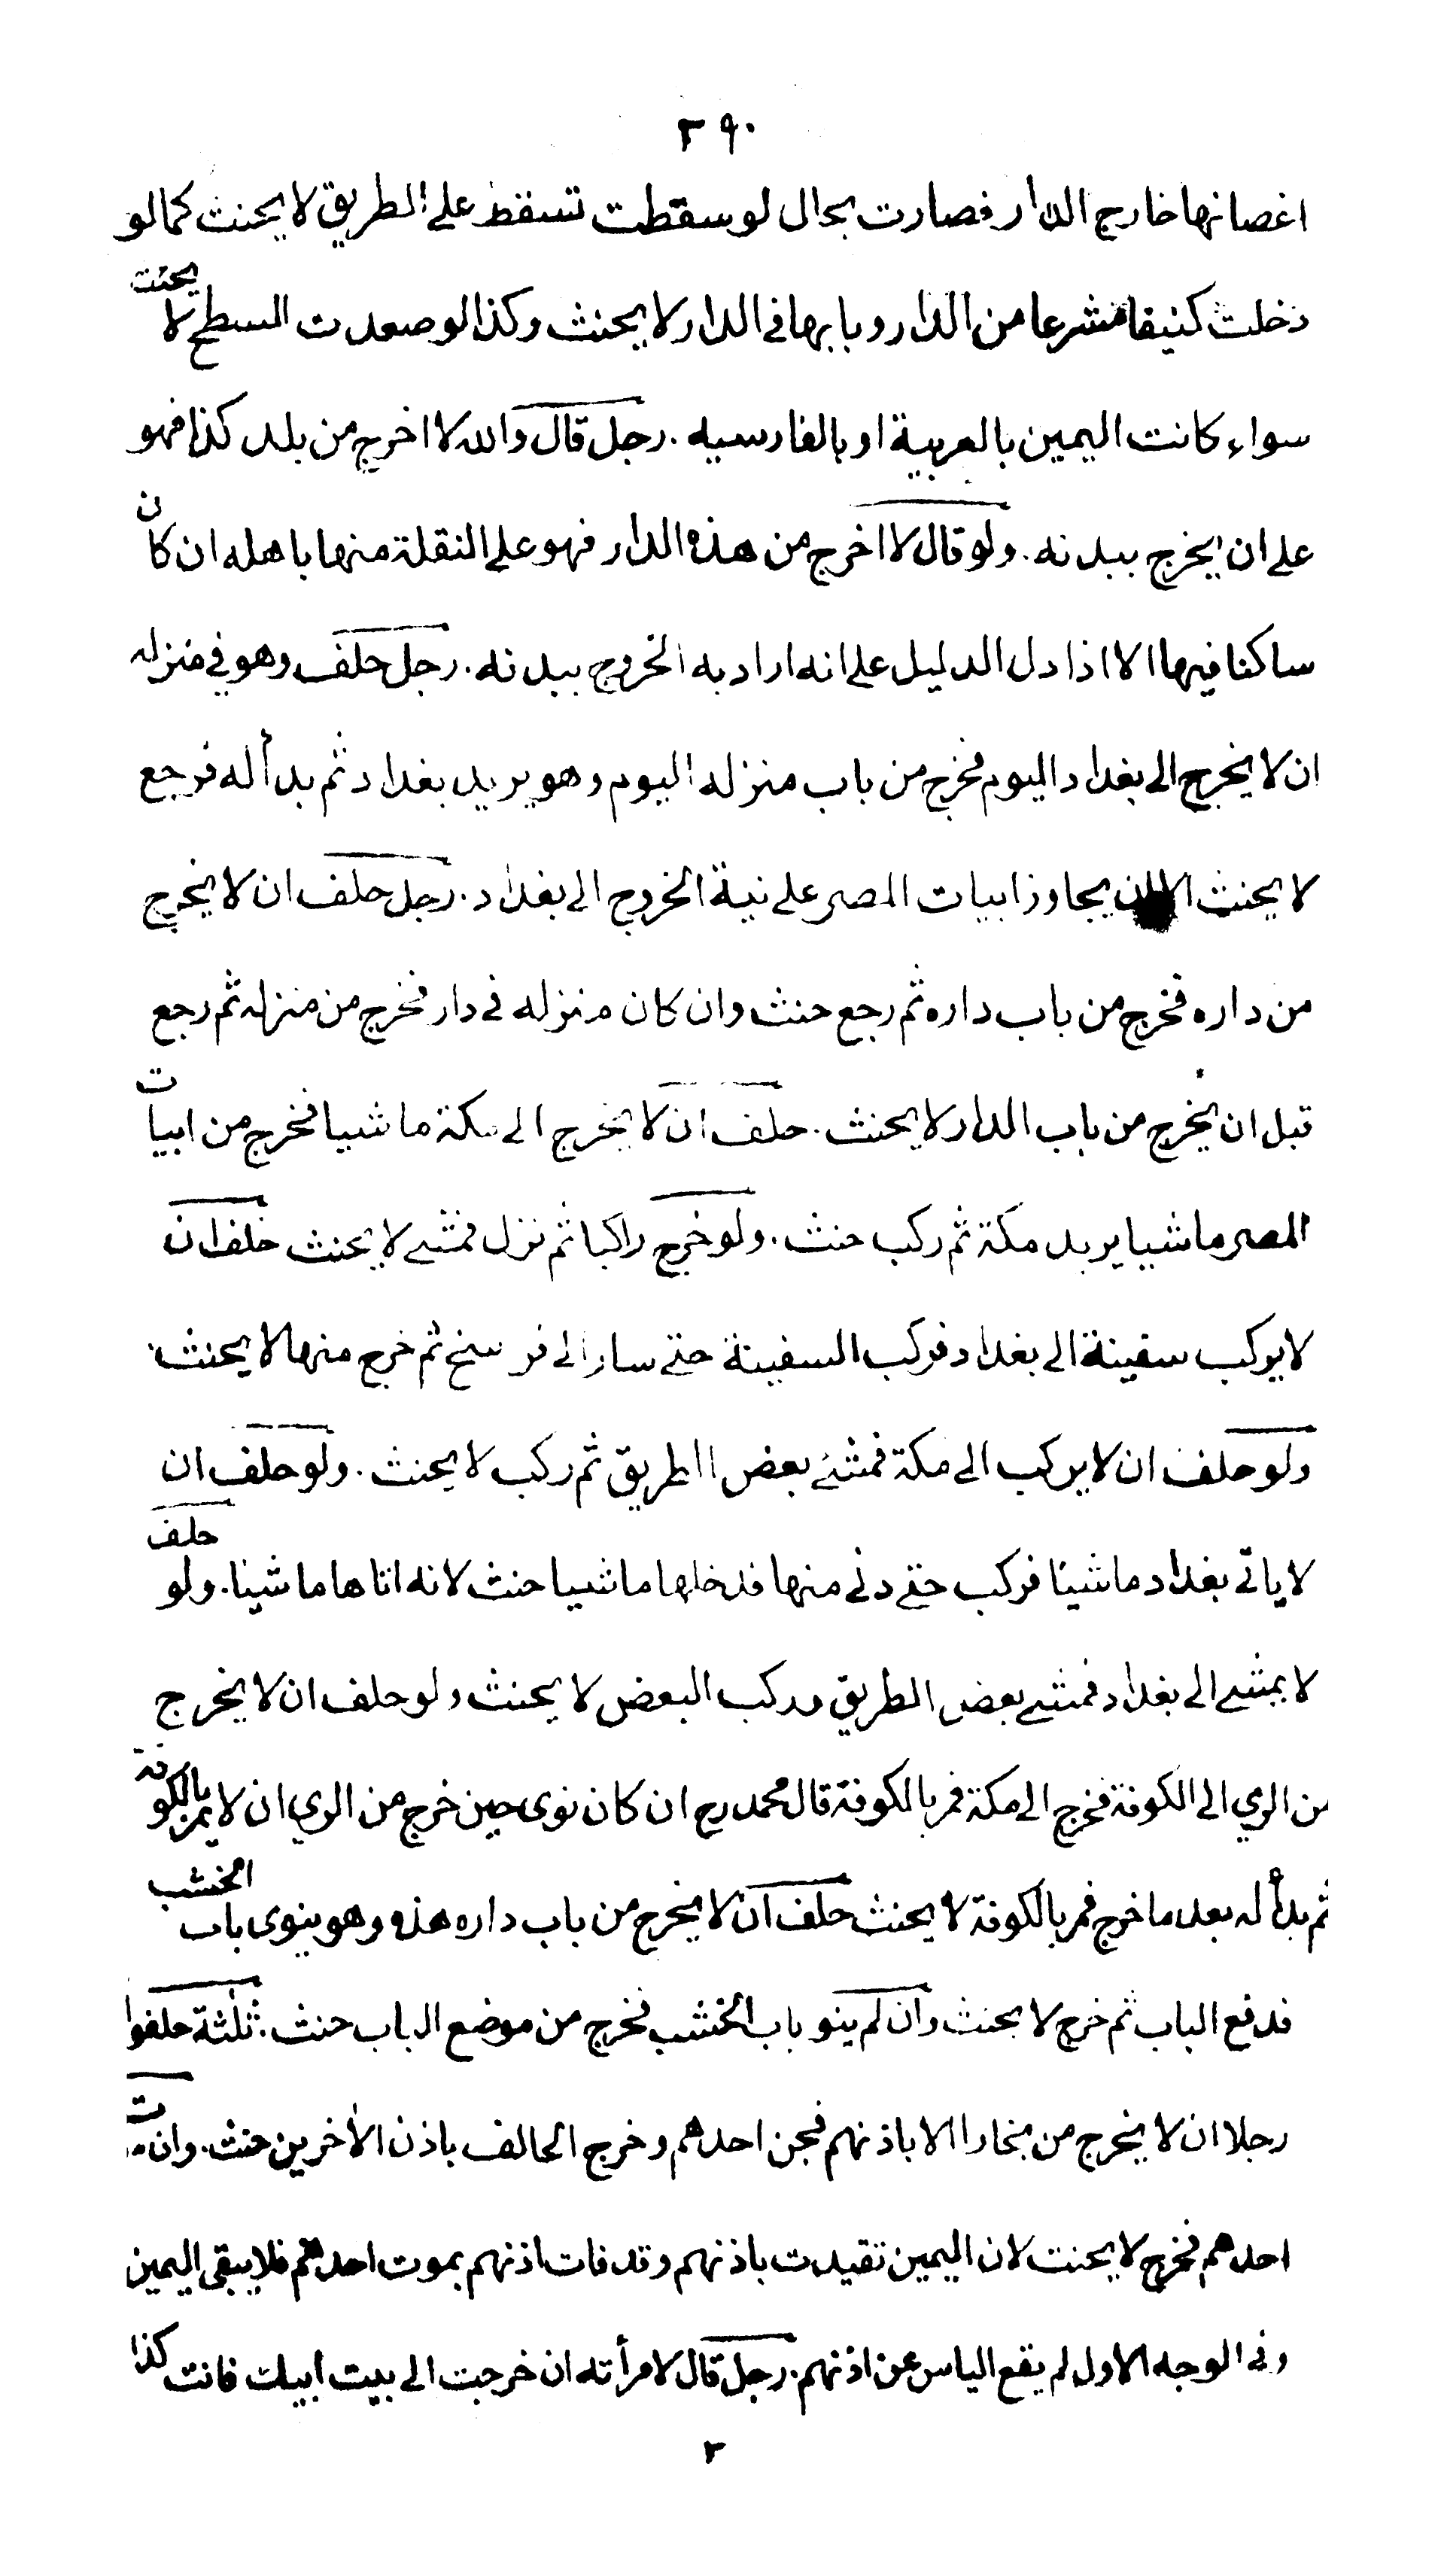 ٣٩٠
اغصانها خارج الدار فصارت بحال لو سقطت تسقط على الطريق لا يحنث كما لو
دخلت كنيفا مشرعا من الدار وبابها فى الدار لا يحنث وكذا لو صعدت السطح لا يحنث
سواء كانت اليمين بالعربية او بالفارسيه . رجل قال والله لا اخرج من بلد كذا فهو
على ان يخرج ببدنه . ولو قال لا اخرج من هذه الدار فهو على النقلة منها باهله ان كان
ساكنا فيها الا اذا دل الدليل على انه اراد به الخروج ببدنه . رجل حلف وهو في منزله
ان لا يخرج الى بغداد اليوم فخرج من باب منزله اليوم وهو يريد بغداد ثم بدأ له فرجع
لا يحنث الا ان يجاوز ابيات المصر على نية الخروج الى بغداد . رجل حلف ان لا يخرج
من داره فخرج من باب داره ثم رجع حنث وان كان منزله فى دار فخرج من منزله ثم رجع
قبل ان يخرج من باب الدار لا يحنث . حلف ان لا يخرج الى مكة ماشيا فخرج من ابيات
المصر ماشيا يريد مكة ثم ركب حنث . ولو خرج راكبا ثم نزل فمشى لا يحنث حلف ان
لا يركب سفينة الى بغداد فركب السفينة حتى سار الى فرسخ ثم خرج منها لا يحنث
ولو حلف ان لا يركب الى مكة فمشى بعض الطريق ثم ركب لا يحنث . ولو حلف ان
لا ياتى بغداد ماشيًا فركب حتى دنى منها فدخلها ماشيا حنث لانه اتاها ماشيًا . ولو حلف
لا يمشى الى بغداد فمشى بعض الطريق وركب البعض لا يحنث ولو حلف ان لا يخرج
من الري الى الكوفة فخرج الى مكة فمر بالكوفة قال محمد رح ان كان نوى حين خرج من الري ان لا يمر بالكوفة
ثم بدأ له بعد ما خرج فمر بالكوفة لا يحنث حلف ان لا يخرج من باب داره هذه وهو ينوى باب الخشب
فدفع الباب ثم خرج لا يحنث وان لم ينو باب الخشب فخرج من موضع الباب حنث . ثلثة حلفوا
رجلا ان لا يخرج من بخارا الا باذنهم فجن احدهم وخرج الحالف باذن الاخرين حنث . وان مات
احدهم فخرج لا يحنث لان اليمين تقيدت باذنهم وقد فات اذنهم بموت احدهم فلا يبقى اليمين
وفى الوجه الاول لم يقع الياس عن اذنهم . رجل قال لامرأته ان خرجت الى بيت ابيك فانت كذا
٣